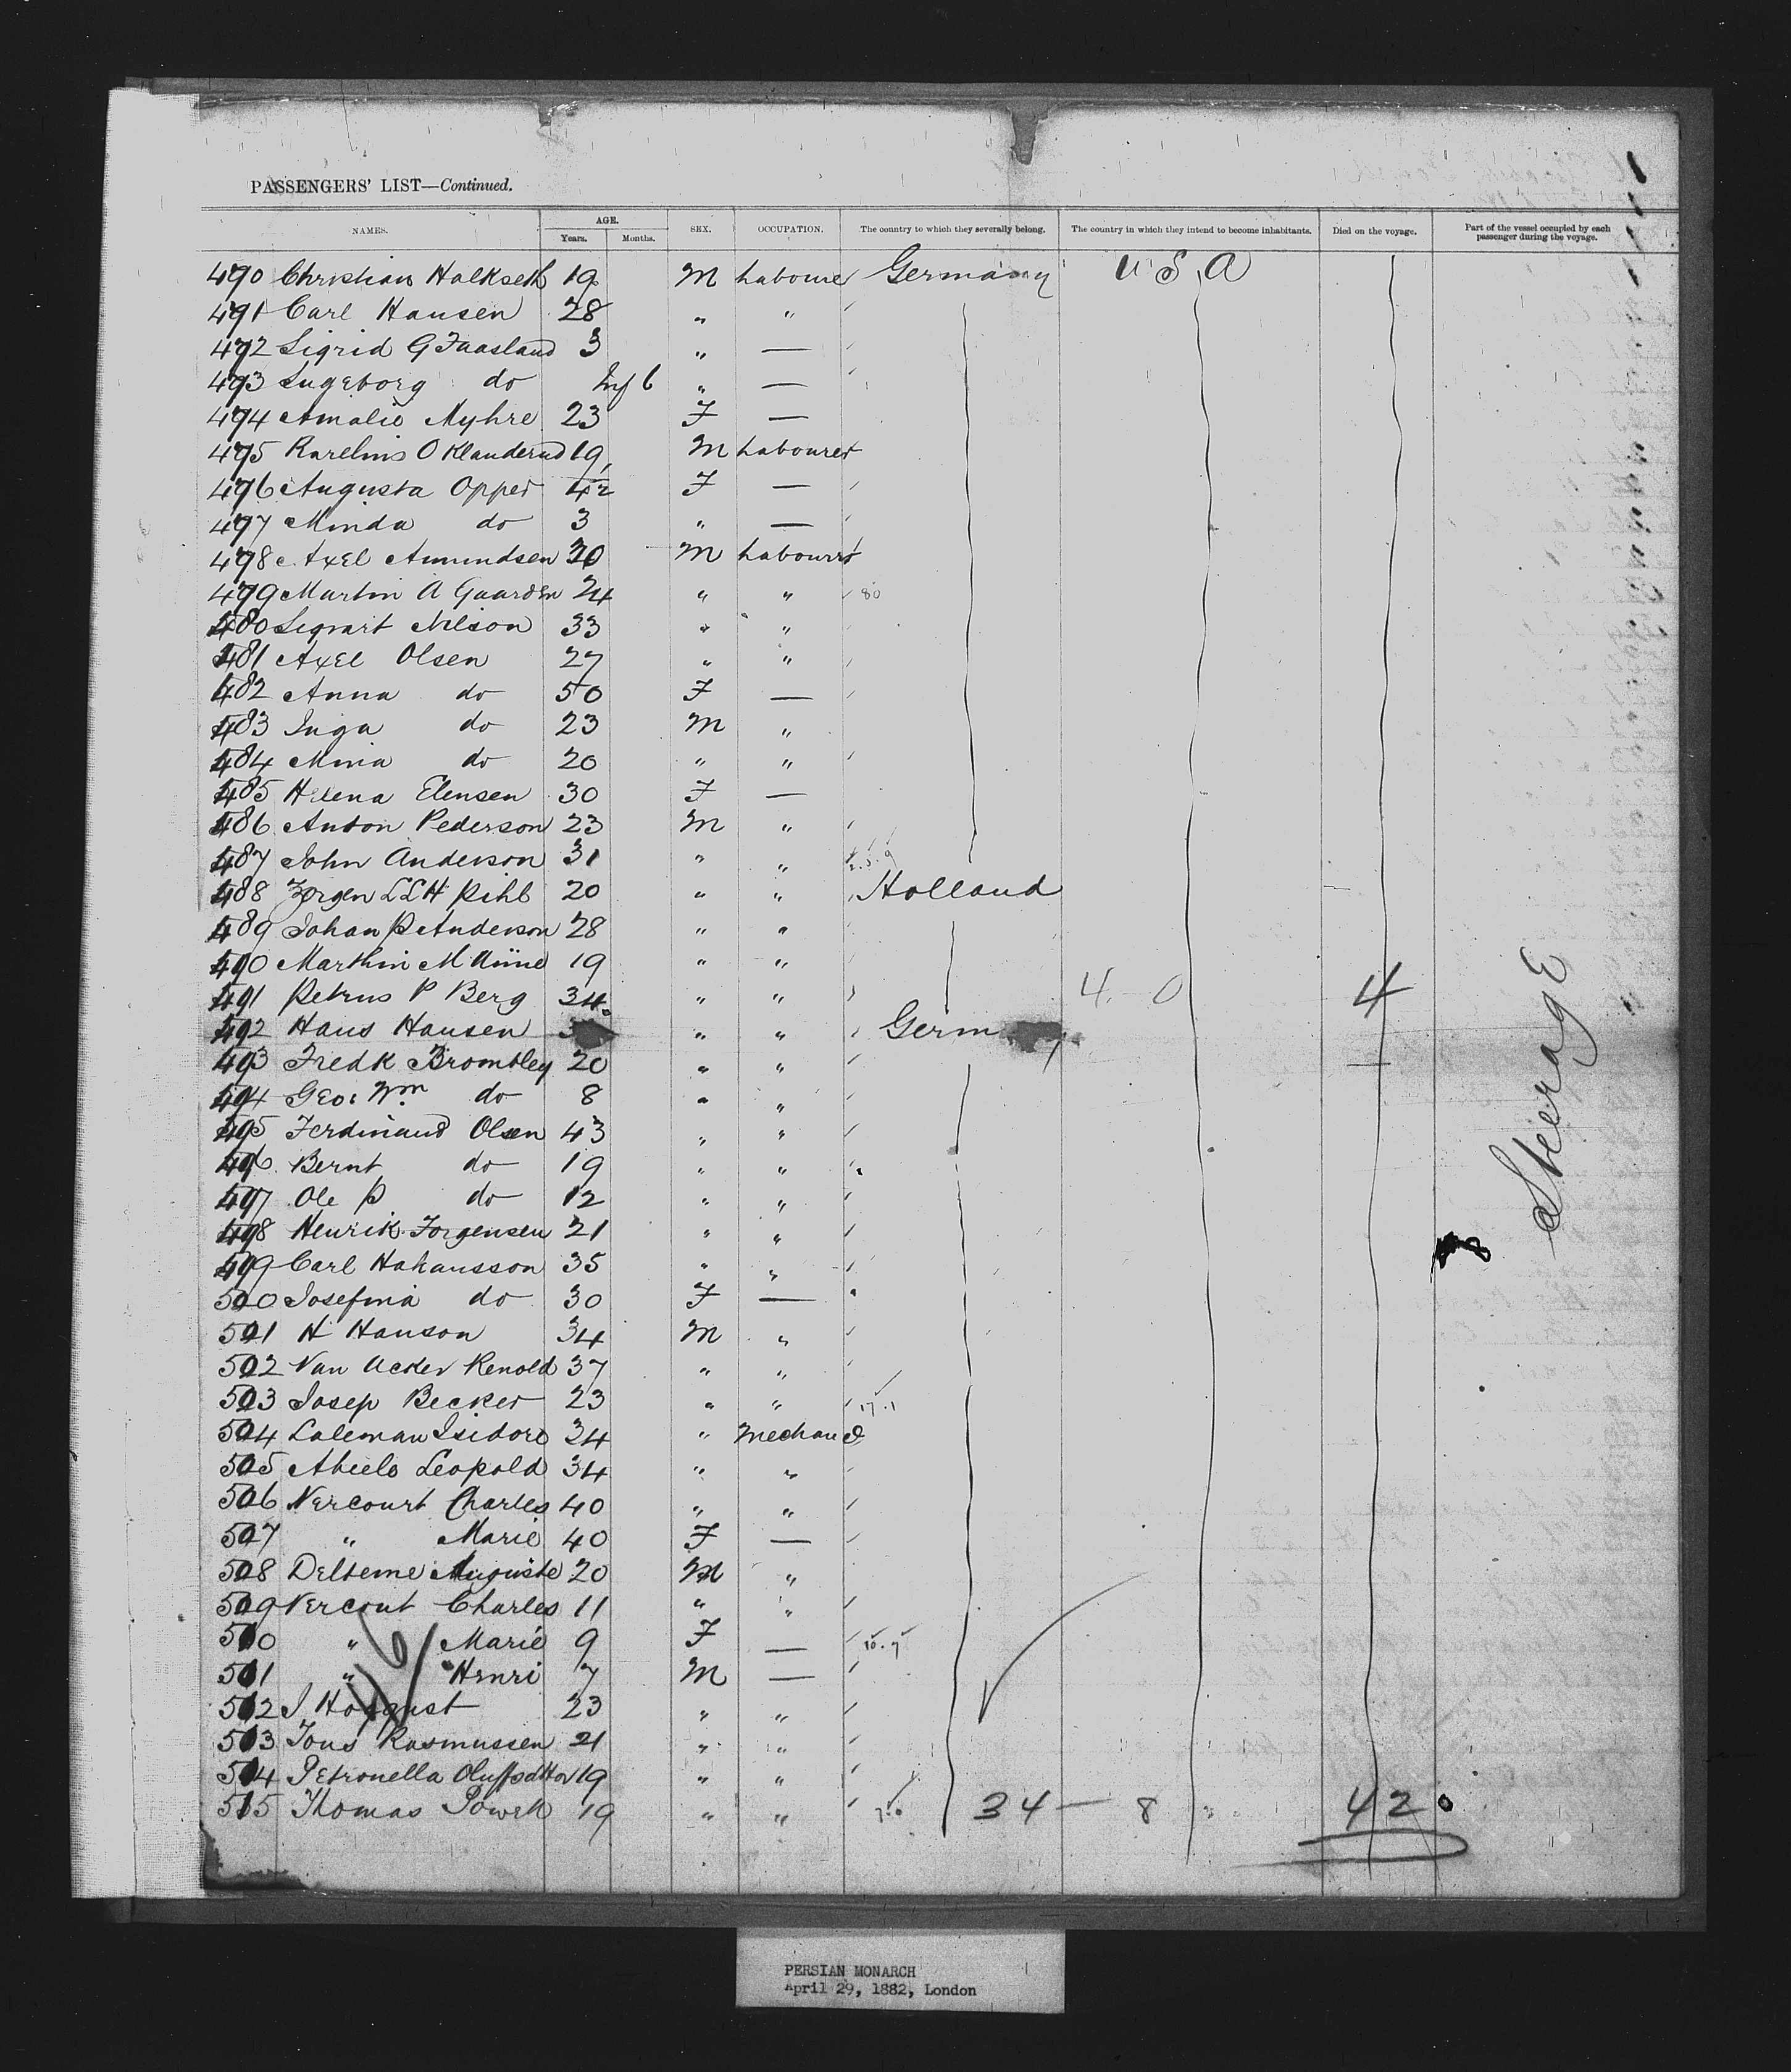 PASSENGERS' LIST—Continued.
NAMES. AGE. Years. Months. SEX. OCCUPATION. The country to which they severally belong. The country in which they intend to become inhabitants. Died on the voyage. Part of the vessel occupied by each passenger during the voyage.
Christian Halkseth 19 M Labourer Germany U S A
Carl Hansen 28 " "
Sigrid G Faasland 3 " —
Ingeborg do Inf 6 " —
Amalie Myhre 23 F —
Karelius O Klanderud 19 M Labourer
Augusta Opper 42 F —
Minda do 3 " —
Axel Amundsen 30 M Labourer
Martin A Gaarden 24 " " 80
480 Sigvart Nilson 33 " "
481 Axel Olsen 27 " "
482 Anna do 50 F —
483 Inga do 23 M "
484 Mina do 20 " "
485 Helena Elensen 30 F —
486 Anton Pederson 23 M "
487 John Anderson 31 " "
488 Jorgen LLH Pihl 20 " " Holland
489 Johan P Anderson 28 " "
490 Marthin M 19 " "
491 Petrus P Berg 34 " " 4 - 0 4
492 Hans Hansen " " Germ y
493 Fredk Brombley 20 " "
494 Geo: Wm do 8 " "
495 Ferdinand Olsen 43 " "
496 Bernt do 19 " "
497 Ole P do 12 " "
498 Henrik Jorgensen 21 " "
499 Carl Hakansson 35 " "
500 Josefina do 30 F —
501 H Hanson 34 M "
502 Van Acker Renold 37 " "
503 Josep Becker 23 " " 17.1
504 Laleman Isidore 34 " Mechanic
505 Abiels Leopold 34 " "
506 Vercourt Charles 40 " "
507 " Marie 40 F —
508 Delteme Auguste 20 M "
509 Vercout Charles 11 " "
510 " Marie 9 F — 10.7
511 " Henri 7 M —
512 J 23 " "
513 Jons Rasmussen 21 " "
514 Petronella 19 " "
515 Thomas 19 " " 34 — 8 42
Steerage
PERSIAN MONARCH
April 29, 1882, London